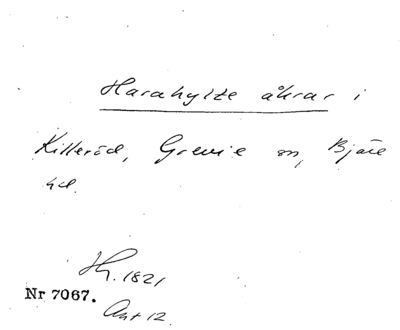 Harahylte åkrar i
Killeröd, Grevie sn, Bjäre
hd.
Hy. 1821
Nr 7067.
Akt 12.